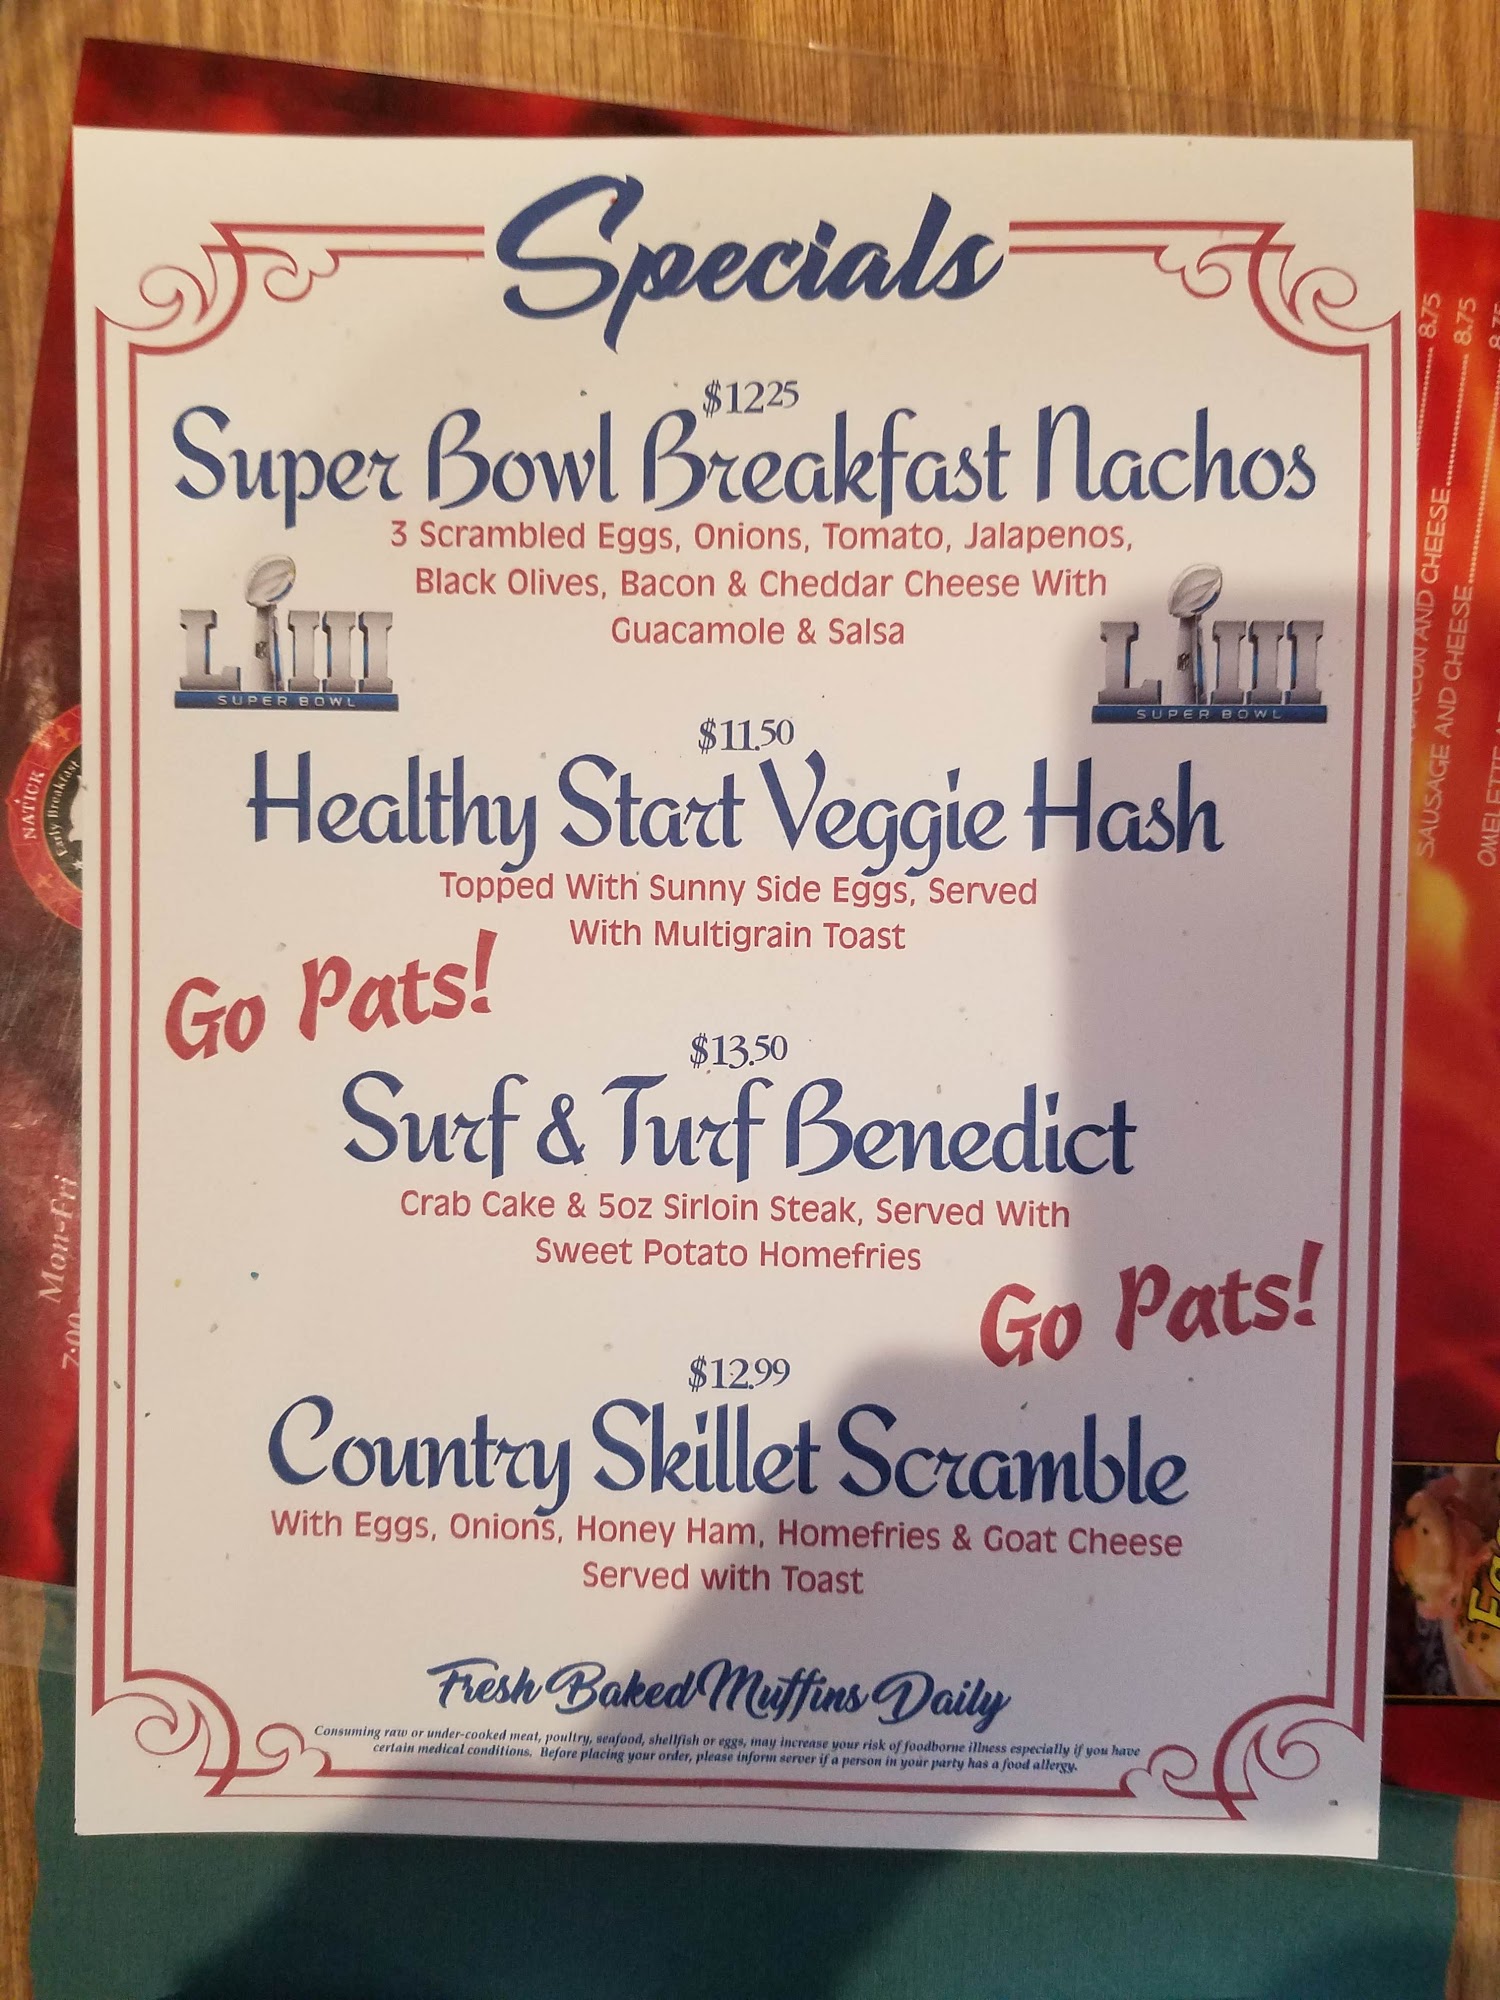 Specials
$12.25
Super Bowl Breakfast Nachos
3 Scrambled Eggs, Onions, Tomato, Jalapenos,
Black Olives, Bacon & Cheddar Cheese With
Guacamole & Salsa
LIII
SUPER BOWL
LIII
SUPER BOWL
$11.50
Healthy Start Veggie Hash
Topped With Sunny Side Eggs, Served
With Multigrain Toast
Go Pats!
$13.50
Surf & Turf Benedict
Crab Cake & 5oz Sirloin Steak, Served With
Sweet Potato Homefries
Go Pats!
$12.99
Country Skillet Scramble
With Eggs, Onions, Honey Ham, Homefries & Goat Cheese
Served with Toast
Fresh Baked Muffins Daily
Consuming raw or under-cooked meat, poultry, seafood, shellfish or eggs, may increase your risk of foodborne illness especially if you have
certain medical conditions. Before placing your order, please inform server if a person in your party has a food allergy.
NATICK
Early Breakfast
Mon-Fri
7:00
BACON AND CHEESE 8.75
SAUSAGE AND CHEESE 8.75
OMELETTE